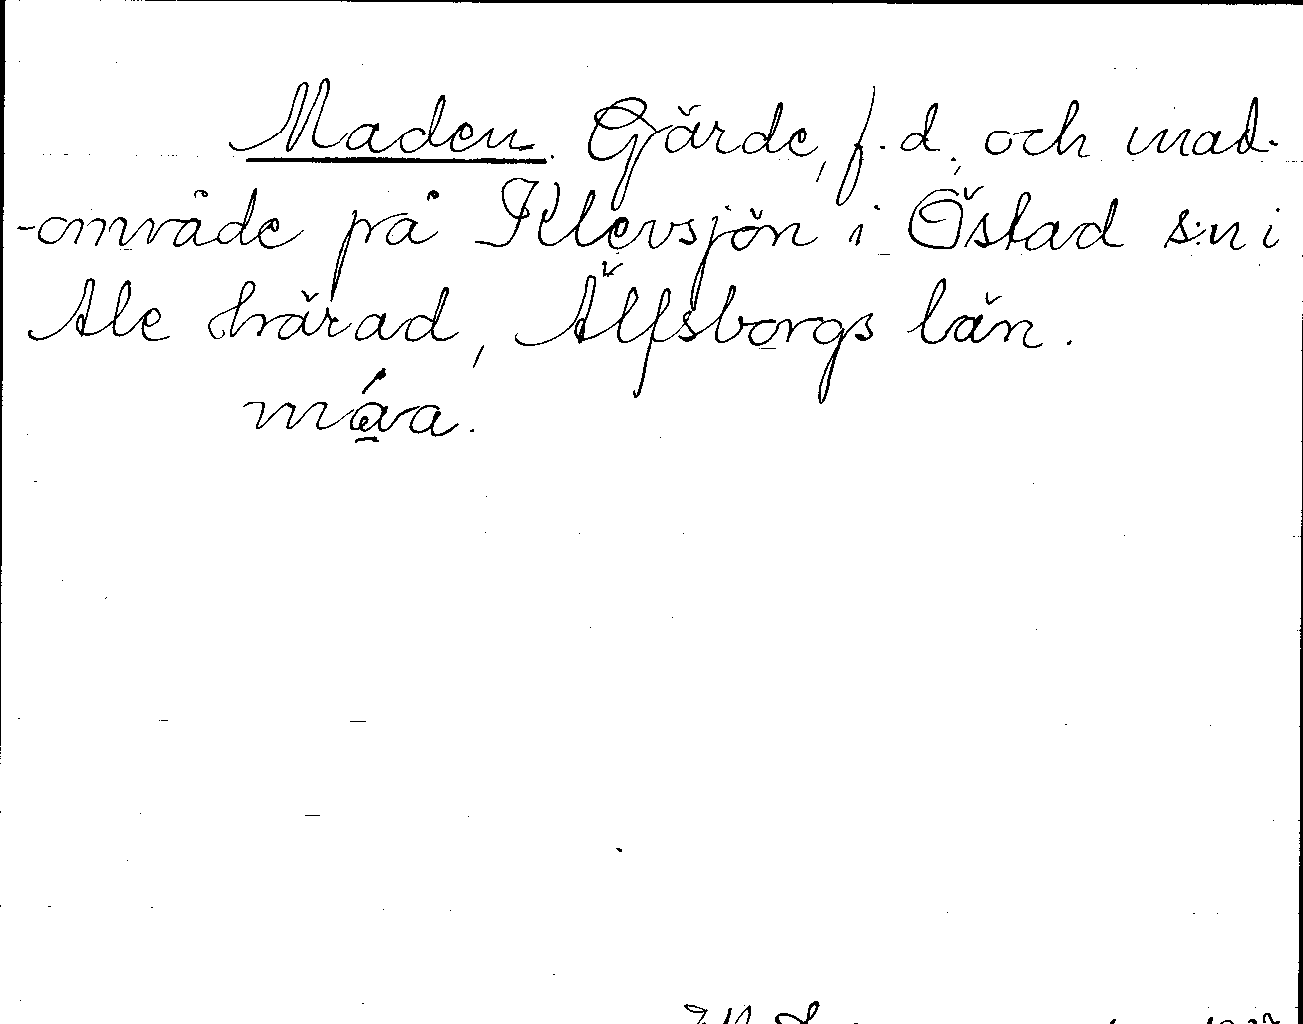 Maden. Gärde, f. d., och mad-
-område på Klevsjön i Östad s:n i
Ale härad, Älfsborgs län.
máva.